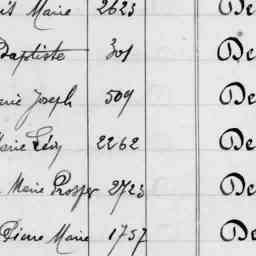 Marie 2623 De
Baptiste 301 De
Joseph 509 De
Marie 2262 De
Marie Prosper 2723 De
Pierre Marie 1757 De